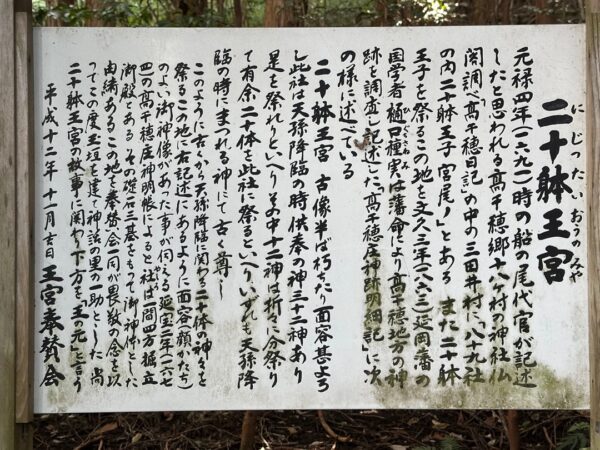 にじったいおうのみや
二十躰王宮
元禄四年(一六九一)時の船の尾代官が記述
したと思われる高千穂郷十八ヶ村の神社仏
閣調べ「高千穂日記」の中の三田井村に「八十九社
の内二十躰王子宮尾ノ」とある また二十躰
王子を祭るこの地を文久三年(一八六三)延岡藩の
国学者樋口種実は藩命により高千穂地方の神
跡を調査し記述した「高千穂庄神跡明細記」に次
の様に述べている
二十躰王宮 古像半ば朽たり面容甚よろ
し此社は天孫降臨の時供奉の神三十二神あり
是を祭れりといへりその中十二神は折々に分祭り
て有余二十体を此社に祭るといへりいずれも天孫降
臨の時にまつれる神にて古く尊し
このように古くから天孫降臨に関わる二十体の神々を
祭るこの地に右記述にあるように面容(顔かたち)
のよい御神像があった事が伺える 延宝二年(一六七
四)の高千穂庄神明帳によると社は間四方掘立
御殿とある その礎石三基をもって御神体とした
由緒あるこの地を奉賛会一同が畏敬の念を以
ってこの度玉垣を建て神話の里の一助とした 尚
二十躰王宮の故事に関わり下方を「王の元」と言う
平成十二年十一月吉日 王宮奉賛会